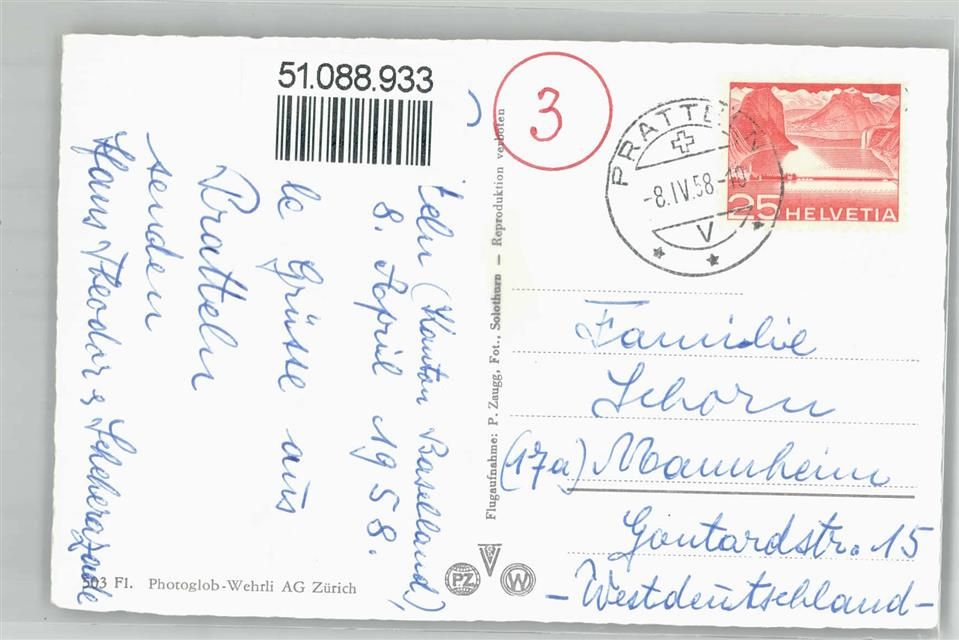 51.088.933
3
PRATTELN
-8.IV.58-10
V
25 HELVETIA
(Kanton Baselland),
8. April 1958.
Grüsse aus
Pratteln
senden
Hans Theodor & Scheherazade
Flugaufnahme: P. Zaugg, Fot., Solothurn — Reproduktion verboten
Familie
Schorn
(17a) Mannheim
Gontardstr. 15
- Westdeutschland -
503 Fl. Photoglob-Wehrli AG Zürich
PZ
W